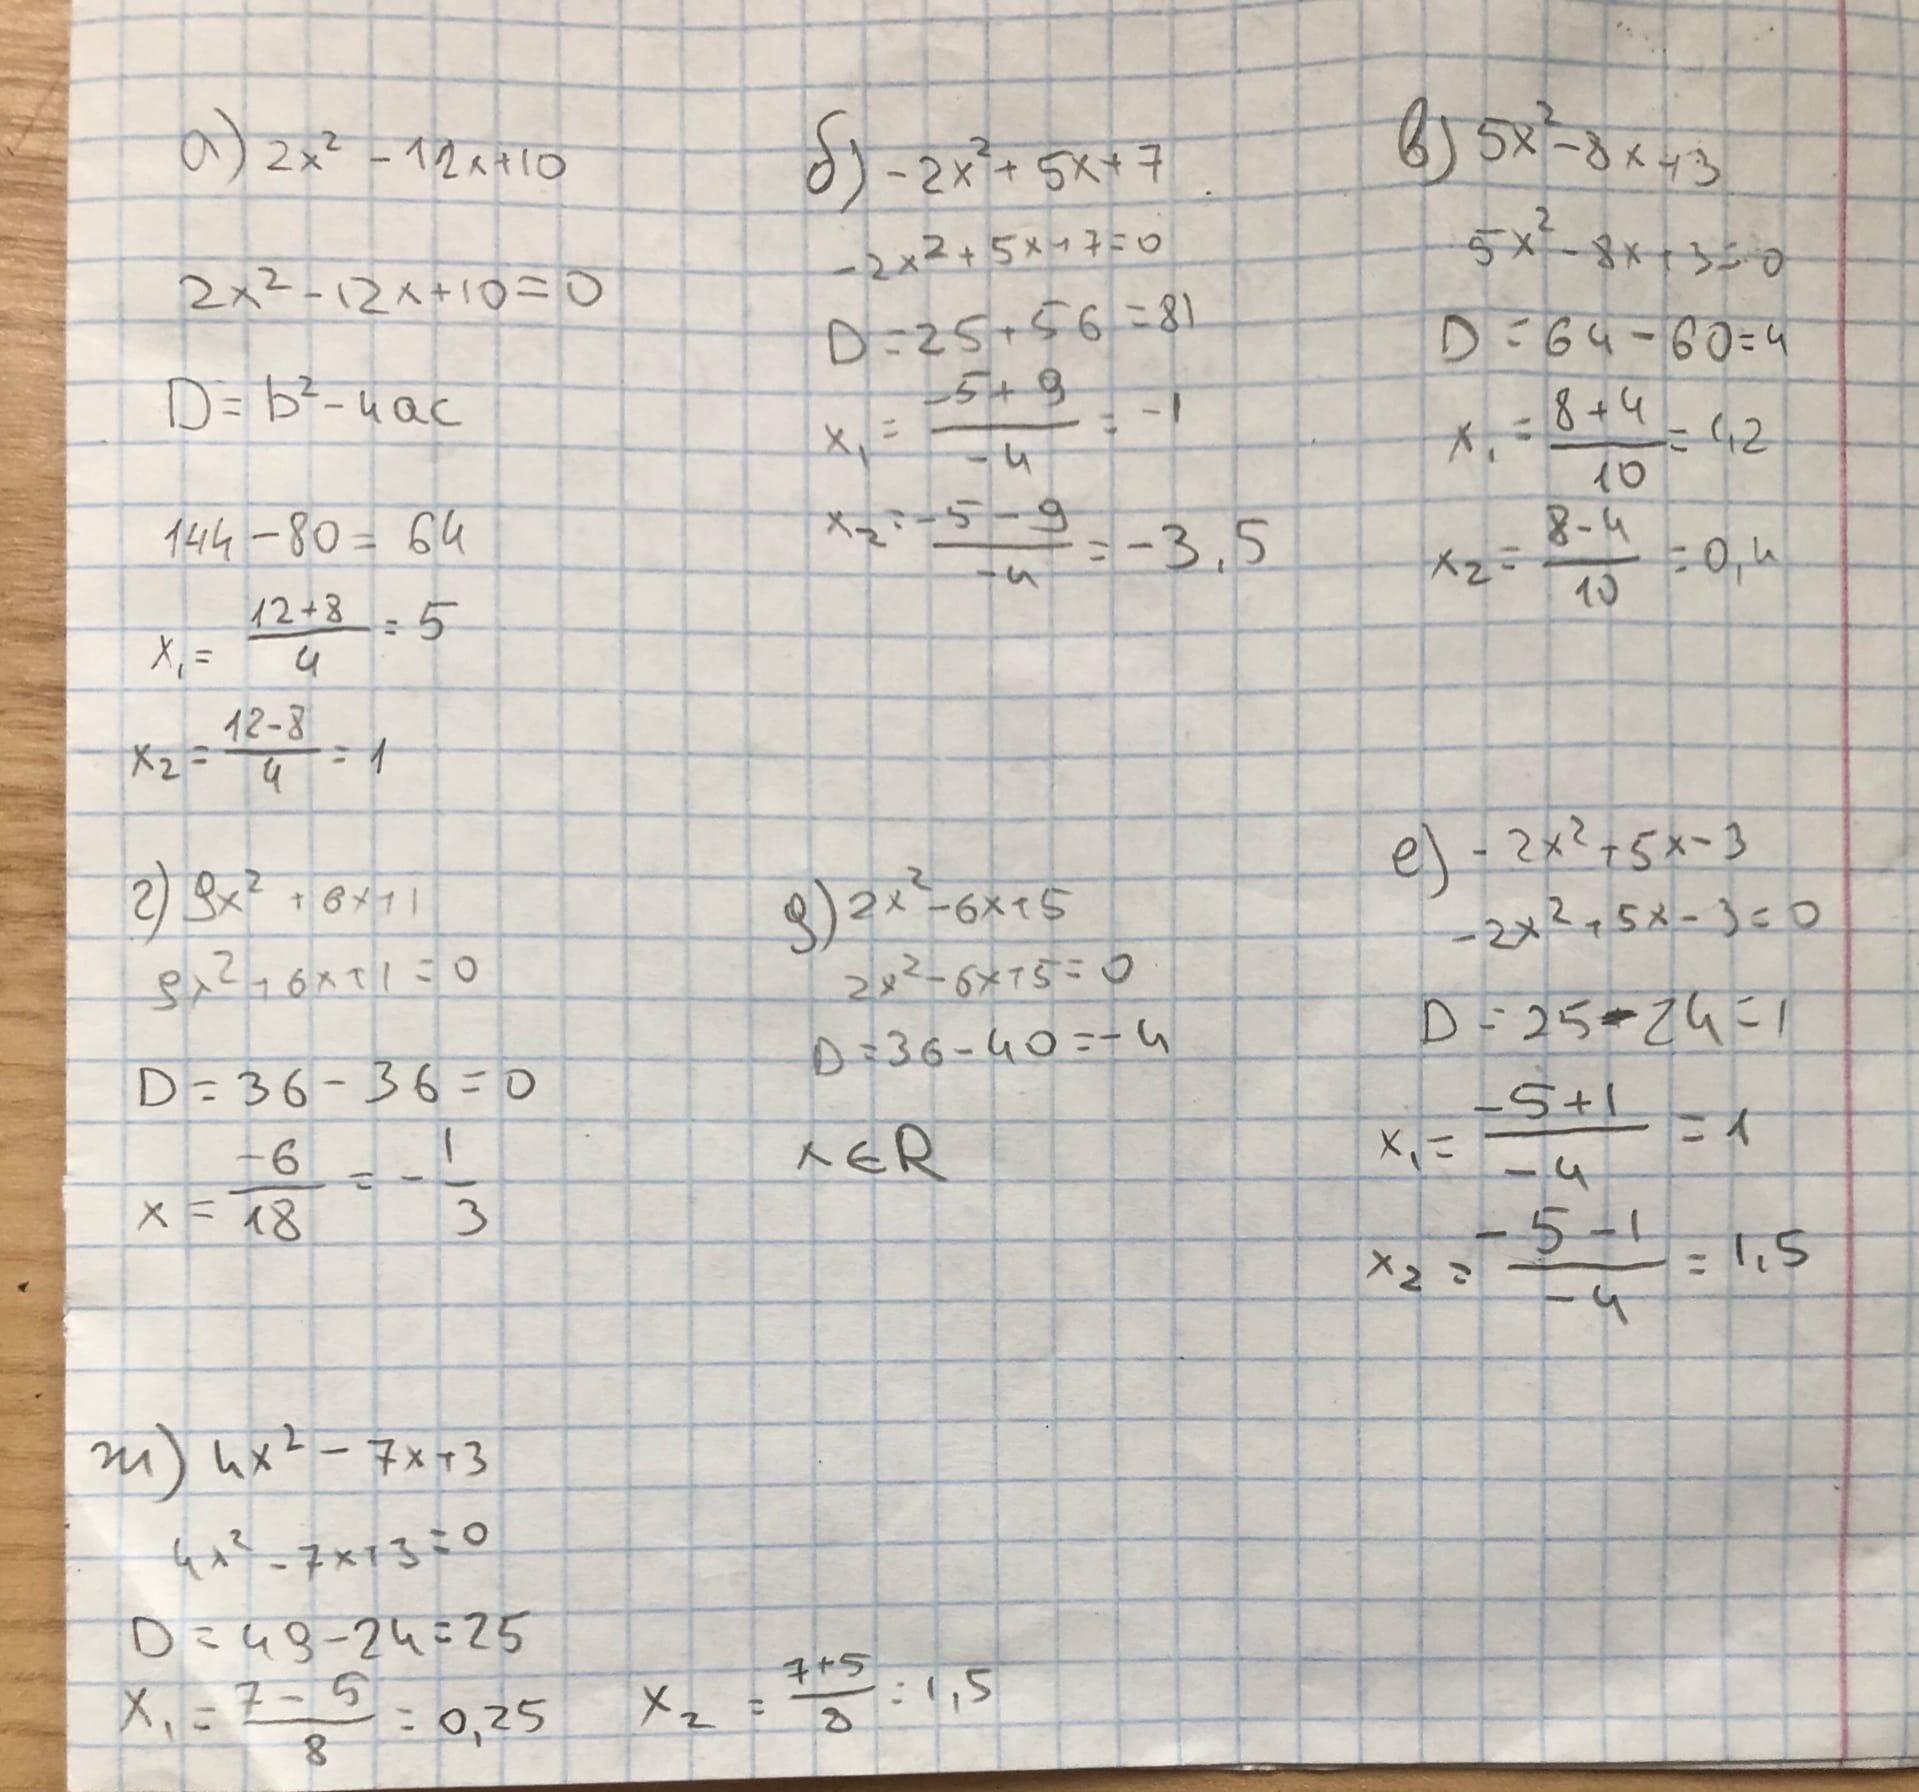 а) 2x² - 12x+10
2x² - 12x+10=0
D = b² - 4ac
144 - 80 = 64
x₁ = (12+8)/4 = 5
x₂ = (12-8)/4 = 1
б) -2x² + 5x+7
-2x² + 5x+7=0
D = 25 + 56 = 81
x₁ = (-5+9)/-4 = -1
x₂ = (-5-9)/-4 = -3,5
в) 5x² - 8x+3
5x² - 8x+3=0
D = 64 - 60 = 4
x₁ = (8+4)/10 = 1,2
x₂ = (8-4)/10 = 0,4
г) 9x² + 6x+1
9x² + 6x+1=0
D = 36 - 36 = 0
x = -6/18 = -1/3
д) 2x² - 6x+5
2x² - 6x+5=0
D = 36 - 40 = -4
x ∈ R
е) -2x² + 5x - 3
-2x² + 5x - 3=0
D = 25 - 24 = 1
x₁ = (-5+1)/-4 = 1
x₂ = (-5-1)/-4 = 1,5
ж) 4x² - 7x+3
4x² - 7x+3=0
D = 49 - 24 = 25
x₁ = (7-5)/8 = 0,25 x₂ = (7+5)/8 = 1,5